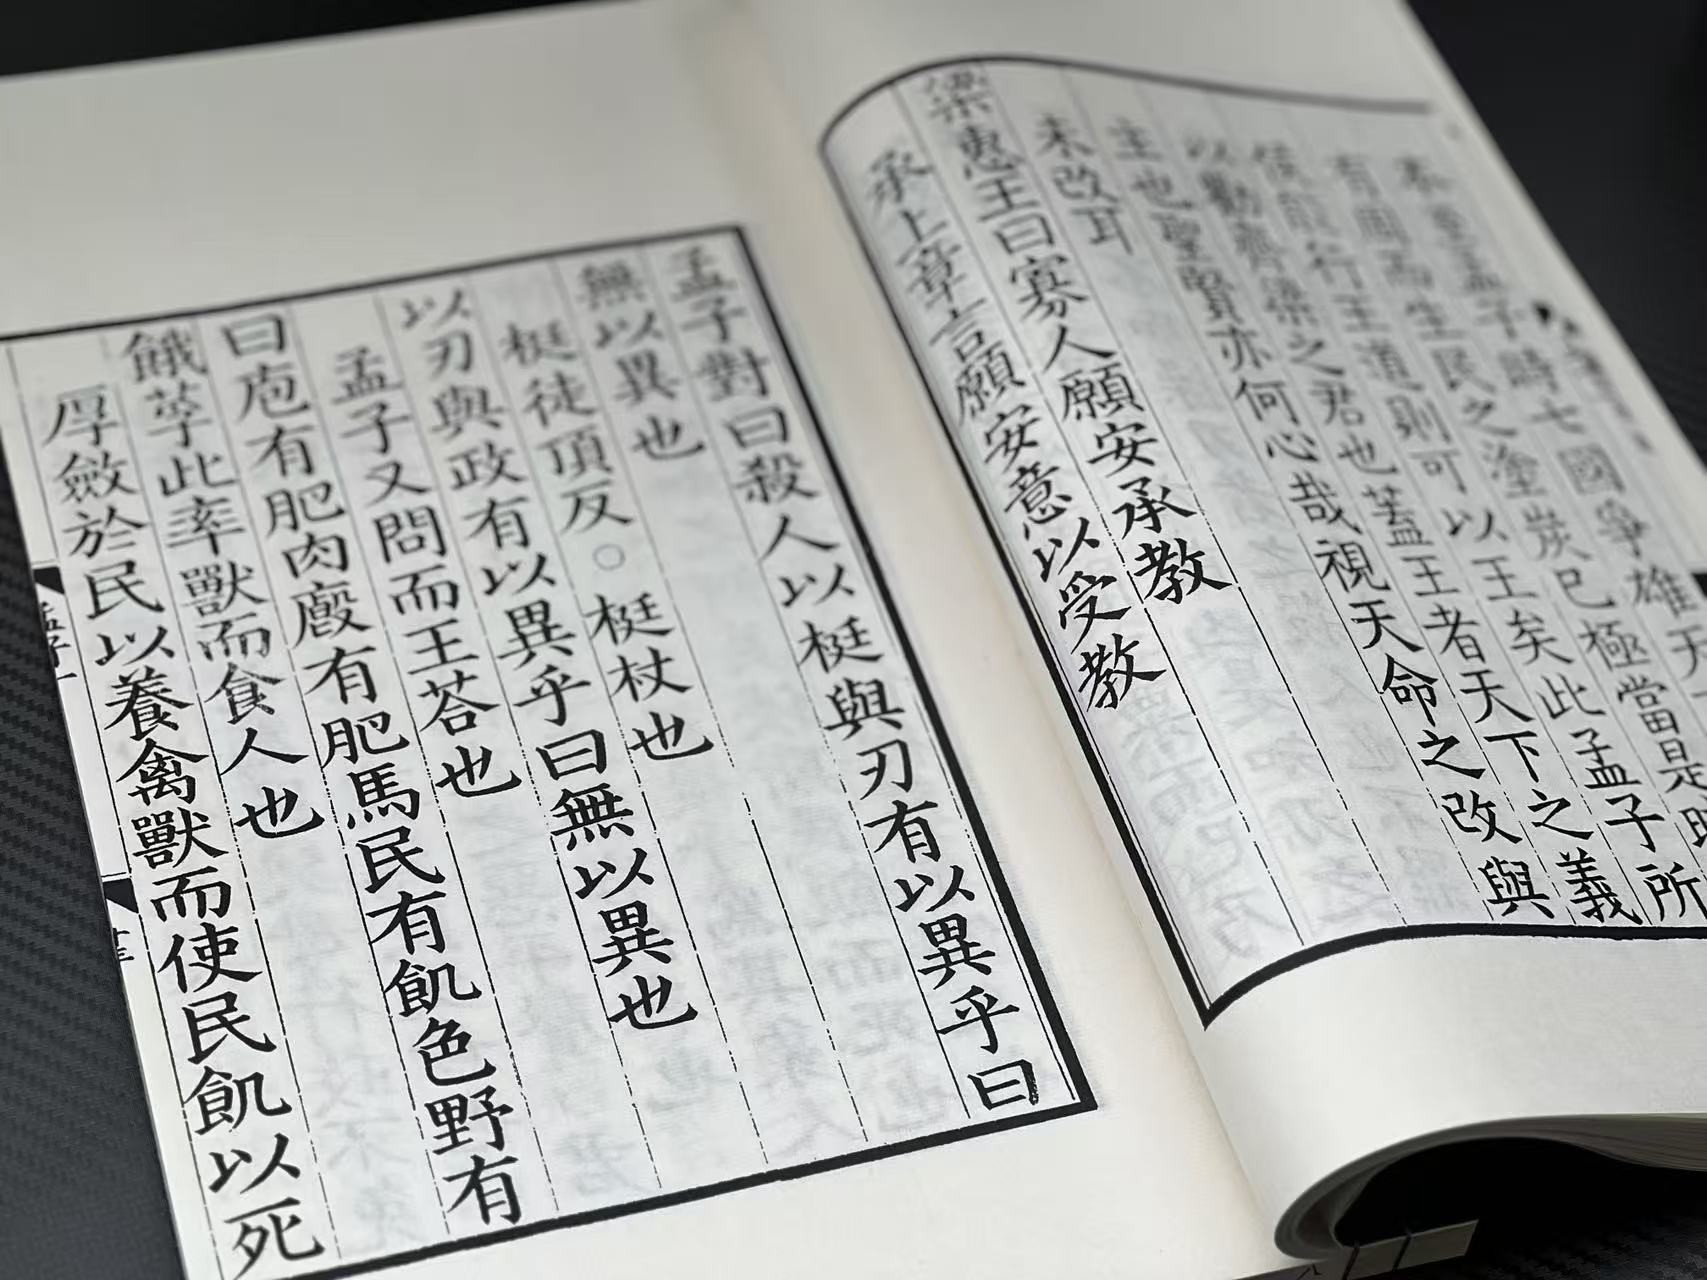 本至孟子時七國爭雄天
有周而生民之塗炭已極當是時
侯能行王道則可以王矣此孟子所
以勸齊梁之君也蓋王者天下之義
主也聖賢亦何心哉視天命之改與
未改耳
梁惠王曰寡人願安承教
承上章言願安意以受教
孟子對曰殺人以梃與刃有以異乎曰
無以異也
梃徒頂反○梃杖也
以刃與政有以異乎曰無以異也
孟子又問而王荅也
曰庖有肥肉廄有肥馬民有飢色野有
餓莩此率獸而食人也
厚斂於民以養禽獸而使民飢以死
孟子一